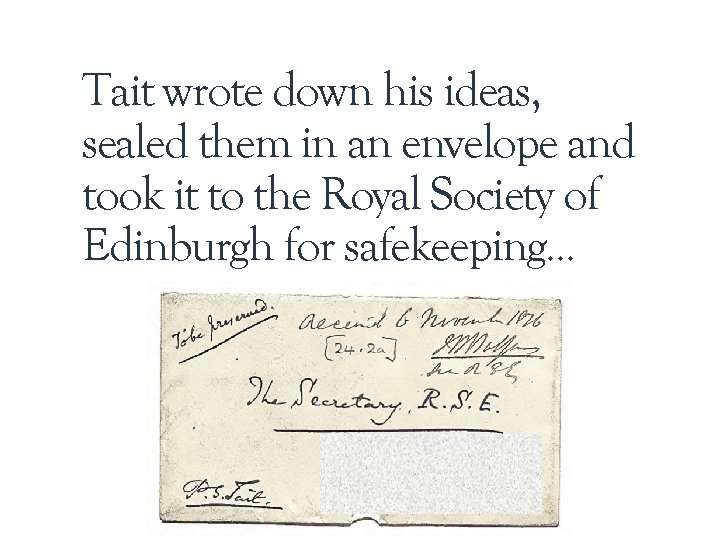 Tait wrote down his ideas,
sealed them in an envelope and
took it to the Royal Society of
Edinburgh for safekeeping...
To be preserved.
6 November 1876
[24.2a]
The Secretary, R.S.E.
P.G. Tait.